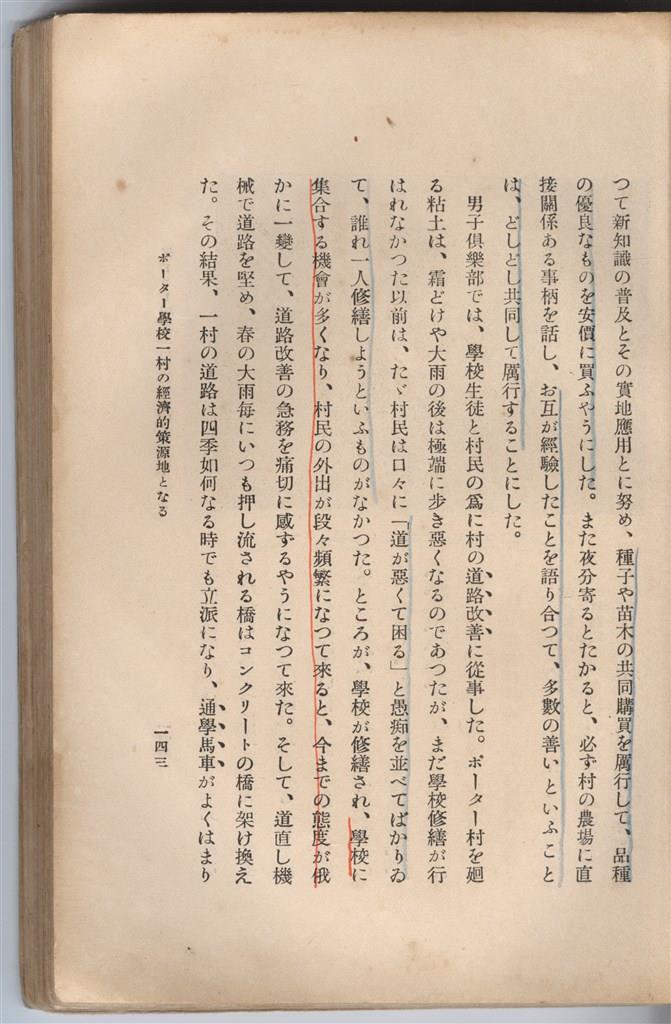 つて新知識の普及とその實地應用とに努め、種子や苗木の共同購買を厲行して、品種
の優良なものを安價に買ふやうにした。また夜分寄るとたかると、必ず村の農場に直
接關係ある事柄を話し、お互が經驗したことを語り合つて、多數の善いといふこと
は、どしどし共同して厲行することにした。
男子倶樂部では、學校生徒と村民の爲に村の道路改善に從事した。ポーター村を廻
る粘土は、霜どけや大雨の後は極端に歩き惡くなるのであつたが、まだ學校修繕が行
はれなかつた以前は、たゞ村民は口々に「道が惡くて困る」と愚痴を並べてばかりゐ
て、誰れ一人修繕しようといふものがなかつた。ところが、學校が修繕され、學校に
集合する機會が多くなり、村民の外出が段々頻繁になつて來ると、今までの態度が俄
かに一變して、道路改善の急務を痛切に感ずるやうになつて來た。そして、道直し機
械で道路を堅め、春の大雨毎にいつも押し流される橋はコンクリートの橋に架け換え
た。その結果、一村の道路は四季如何なる時でも立派になり、通學馬車がよくはまり
ポーター學校一村の經濟的策源地となる
一四三